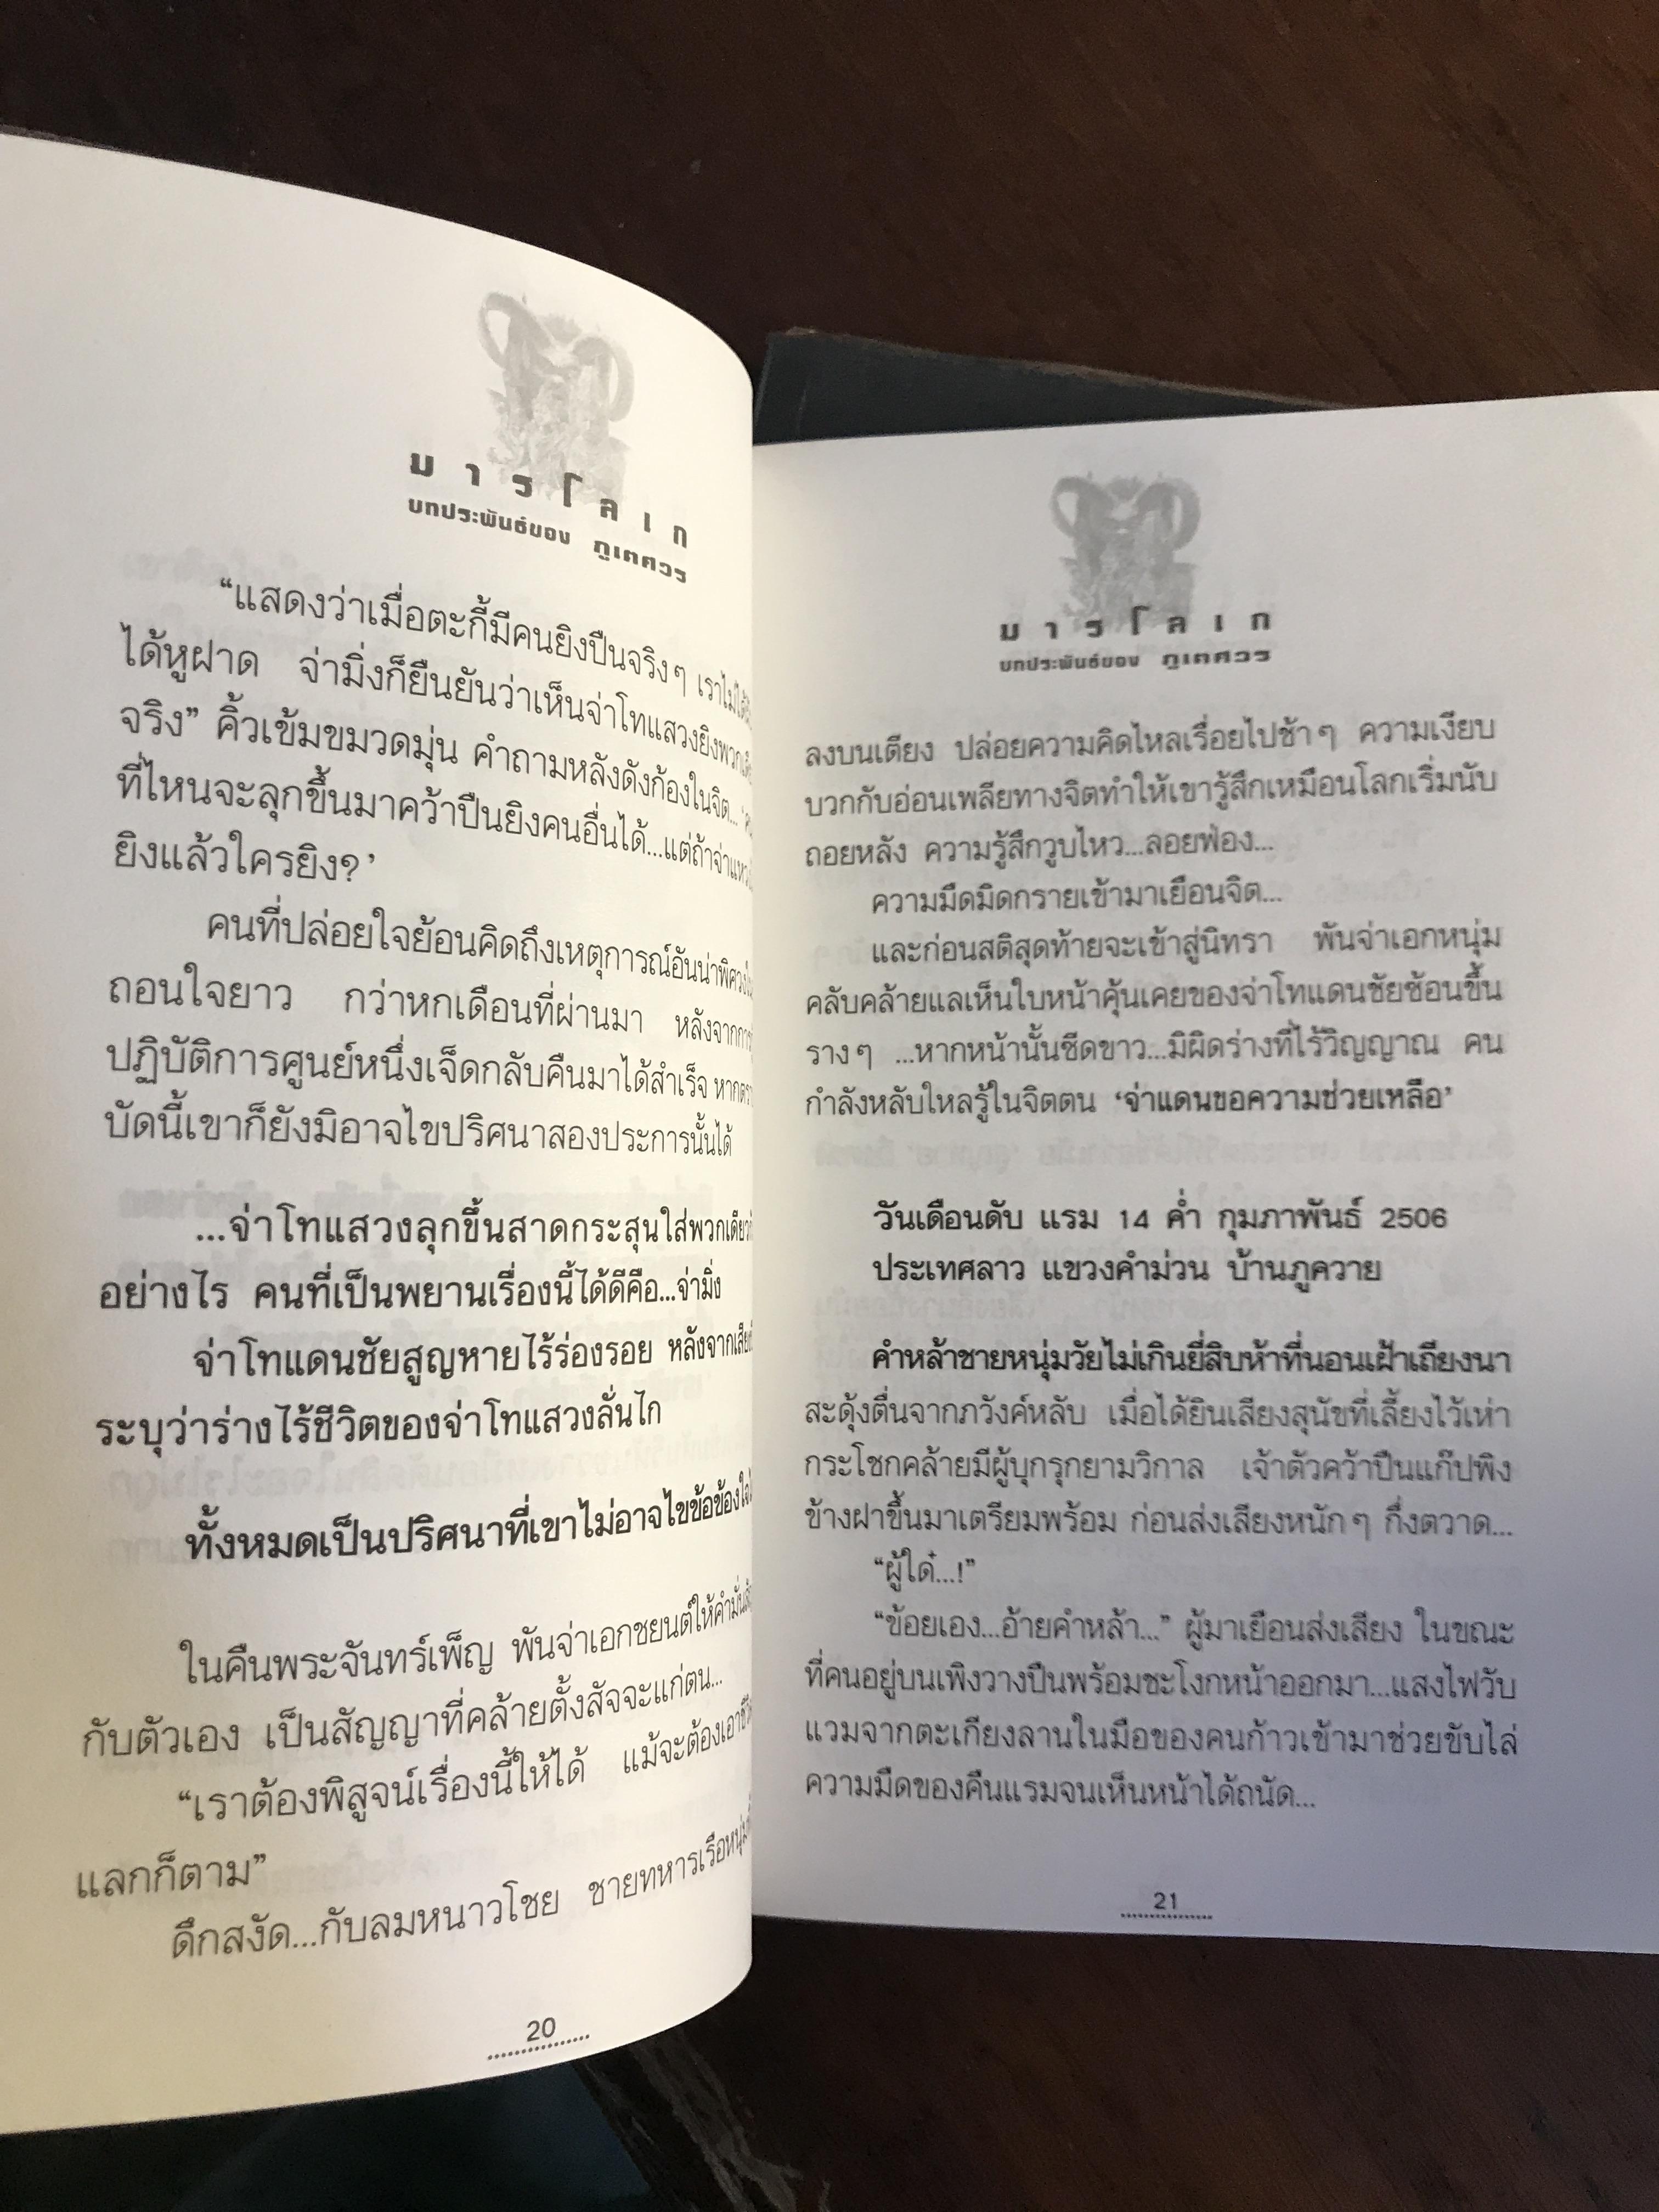 มารโลเก
บทประพันธ์ของ ภูเตศวร
“แสดงว่าเมื่อตะกี้มีคนยิงปืนจริงๆ เราไม่ได้
ได้หูฝาด จ่ามิ่งก็ยืนยันว่าเห็นจ่าโทแสวงยิงพวก
จริง” คิ้วเข้มขมวดมุ่น คำถามหลังดังก้องในจิต...
ที่ไหนจะลุกขึ้นมาคว้าปืนยิงคนอื่นได้...แต่ถ้าจ่าแหวง
ยิงแล้วใครยิง?’
คนที่ปล่อยใจย้อนคิดถึงเหตุการณ์อันน่าพิศวง
ถอนใจยาว กว่าหกเดือนที่ผ่านมา หลังจาก
ปฏิบัติการศูนย์หนึ่งเจ็ดกลับคืนมาได้สำเร็จ หาก
บัดนี้เขาก็ยังมิอาจไขปริศนาสองประการนั้นได้
...จ่าโทแสวงลุกขึ้นสาดกระสุนใส่พวกเดียว
อย่างไร คนที่เป็นพยานเรื่องนี้ได้ดีคือ...จ่ามิ่ง
จ่าโทแดนชัยสูญหายไร้ร่องรอย หลังจากเสียง
ระบุว่าร่างไร้ชีวิตของจ่าโทแสวงลั่นไก
ทั้งหมดเป็นปริศนาที่เขาไม่อาจไขข้อข้องใจ
ในคืนพระจันทร์เพ็ญ พันจ่าเอกชยนต์ให้คำมั่น
กับตัวเอง เป็นสัญญาที่คล้ายตั้งสัจจะแก่ตน...
“เราต้องพิสูจน์เรื่องนี้ให้ได้ แม้จะต้องเอาชีวิต
แลกก็ตาม”
ดึกสงัด...กับลมหนาวโชย ชายทหารเรือหนุ่ม
20
มารโลเก
บทประพันธ์ของ ภูเตศวร
ลงบนเตียง ปล่อยความคิดไหลเรื่อยไปช้าๆ ความเงียบ
บวกกับอ่อนเพลียทางจิตทำให้เขารู้สึกเหมือนโลกเริ่มนับ
ถอยหลัง ความรู้สึกวูบไหว...ลอยฟ่อง...
ความมืดมิดกรายเข้ามาเยือนจิต...
และก่อนสติสุดท้ายจะเข้าสู่นิทรา พันจ่าเอกหนุ่ม
คลับคล้ายแลเห็นใบหน้าคุ้นเคยของจ่าโทแดนชัยซ้อนขึ้น
รางๆ ...หากหน้านั้นซีดขาว...มิผิดร่างที่ไร้วิญญาณ คน
กำลังหลับใหลรู้ในจิตตน ‘จ่าแดนขอความช่วยเหลือ’
วันเดือนดับ แรม 14 ค่ำ กุมภาพันธ์ 2506
ประเทศลาว แขวงคำม่วน บ้านภูควาย
คำหล้าชายหนุ่มวัยไม่เกินยี่สิบห้าที่นอนเฝ้าเถียงนา
สะดุ้งตื่นจากภวังค์หลับ เมื่อได้ยินเสียงสุนัขที่เลี้ยงไว้เห่า
กระโชกคล้ายมีผู้บุกรุกยามวิกาล เจ้าตัวคว้าปืนแก๊ปพิง
ข้างฝาขึ้นมาเตรียมพร้อม ก่อนส่งเสียงหนักๆ กึ่งตวาด...
“ผู้ใด๋...!”
“ข้อยเอง...อ้ายคำหล้า...” ผู้มาเยือนส่งเสียง ในขณะ
ที่คนอยู่บนเพิงวางปืนพร้อมชะโงกหน้าออกมา...แสงไฟวับ
แวมจากตะเกียงลานในมือของคนก้าวเข้ามาช่วยขับไล่
ความมืดของคืนแรมจนเห็นหน้าได้ถนัด...
21